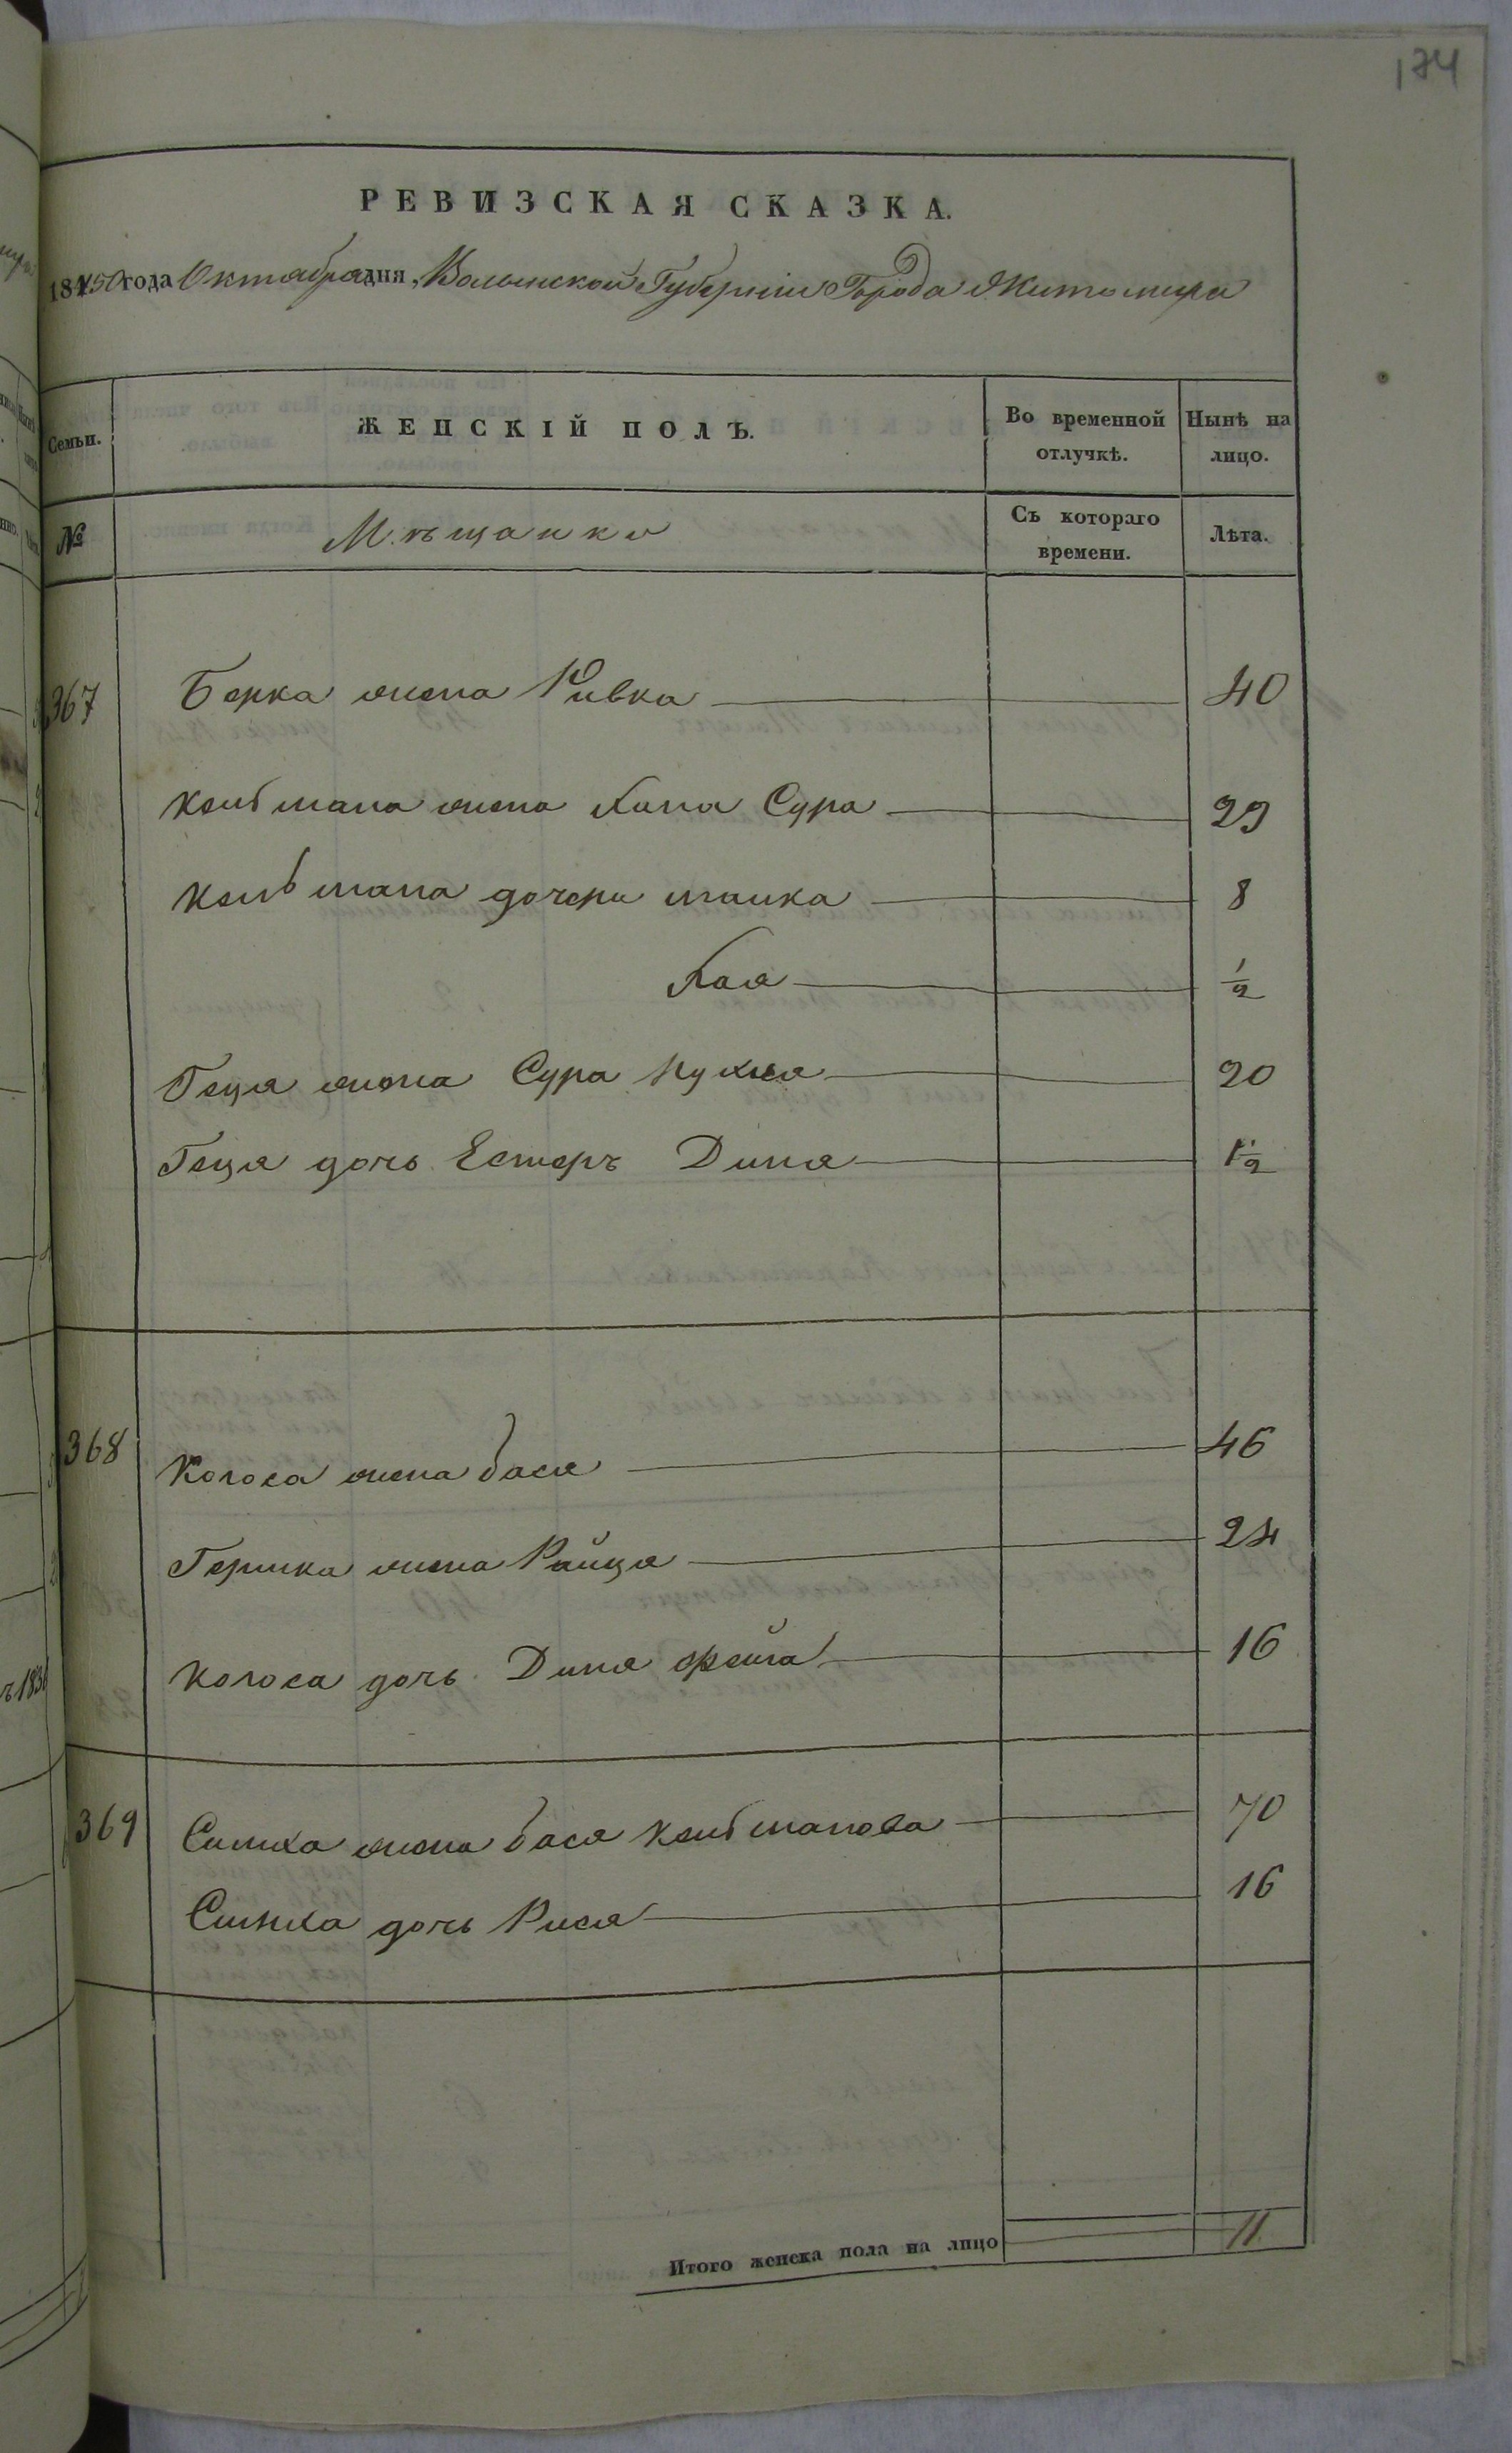 174
РЕВИЗСКАЯ СКАЗКА.
1850 года Октября дня, Волынской Губерніи Города Житомира
Семьи.
ЖЕНСКІЙ ПОЛЪ.
Во временной отлучкѣ.
Нынѣ на лицо.
№
Мѣщанки
Съ котораго времени.
Лѣта.
367 Берка жена Ривка 40
Кельмана жена Хана Сура 29
Кельмана дочери 8
Хая ½
Геця жена Сура 20
Геця дочь Естеръ Диня 1½
368 жена бася 46
Гершка жена Райця 24
дочь Диня фейга 16
369 Симха жена бася Кельманова 70
Симха дочь Рися 16
Итого женска пола на лицо 11